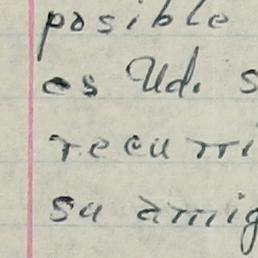 posible
es Ud. s
recurri
su amig